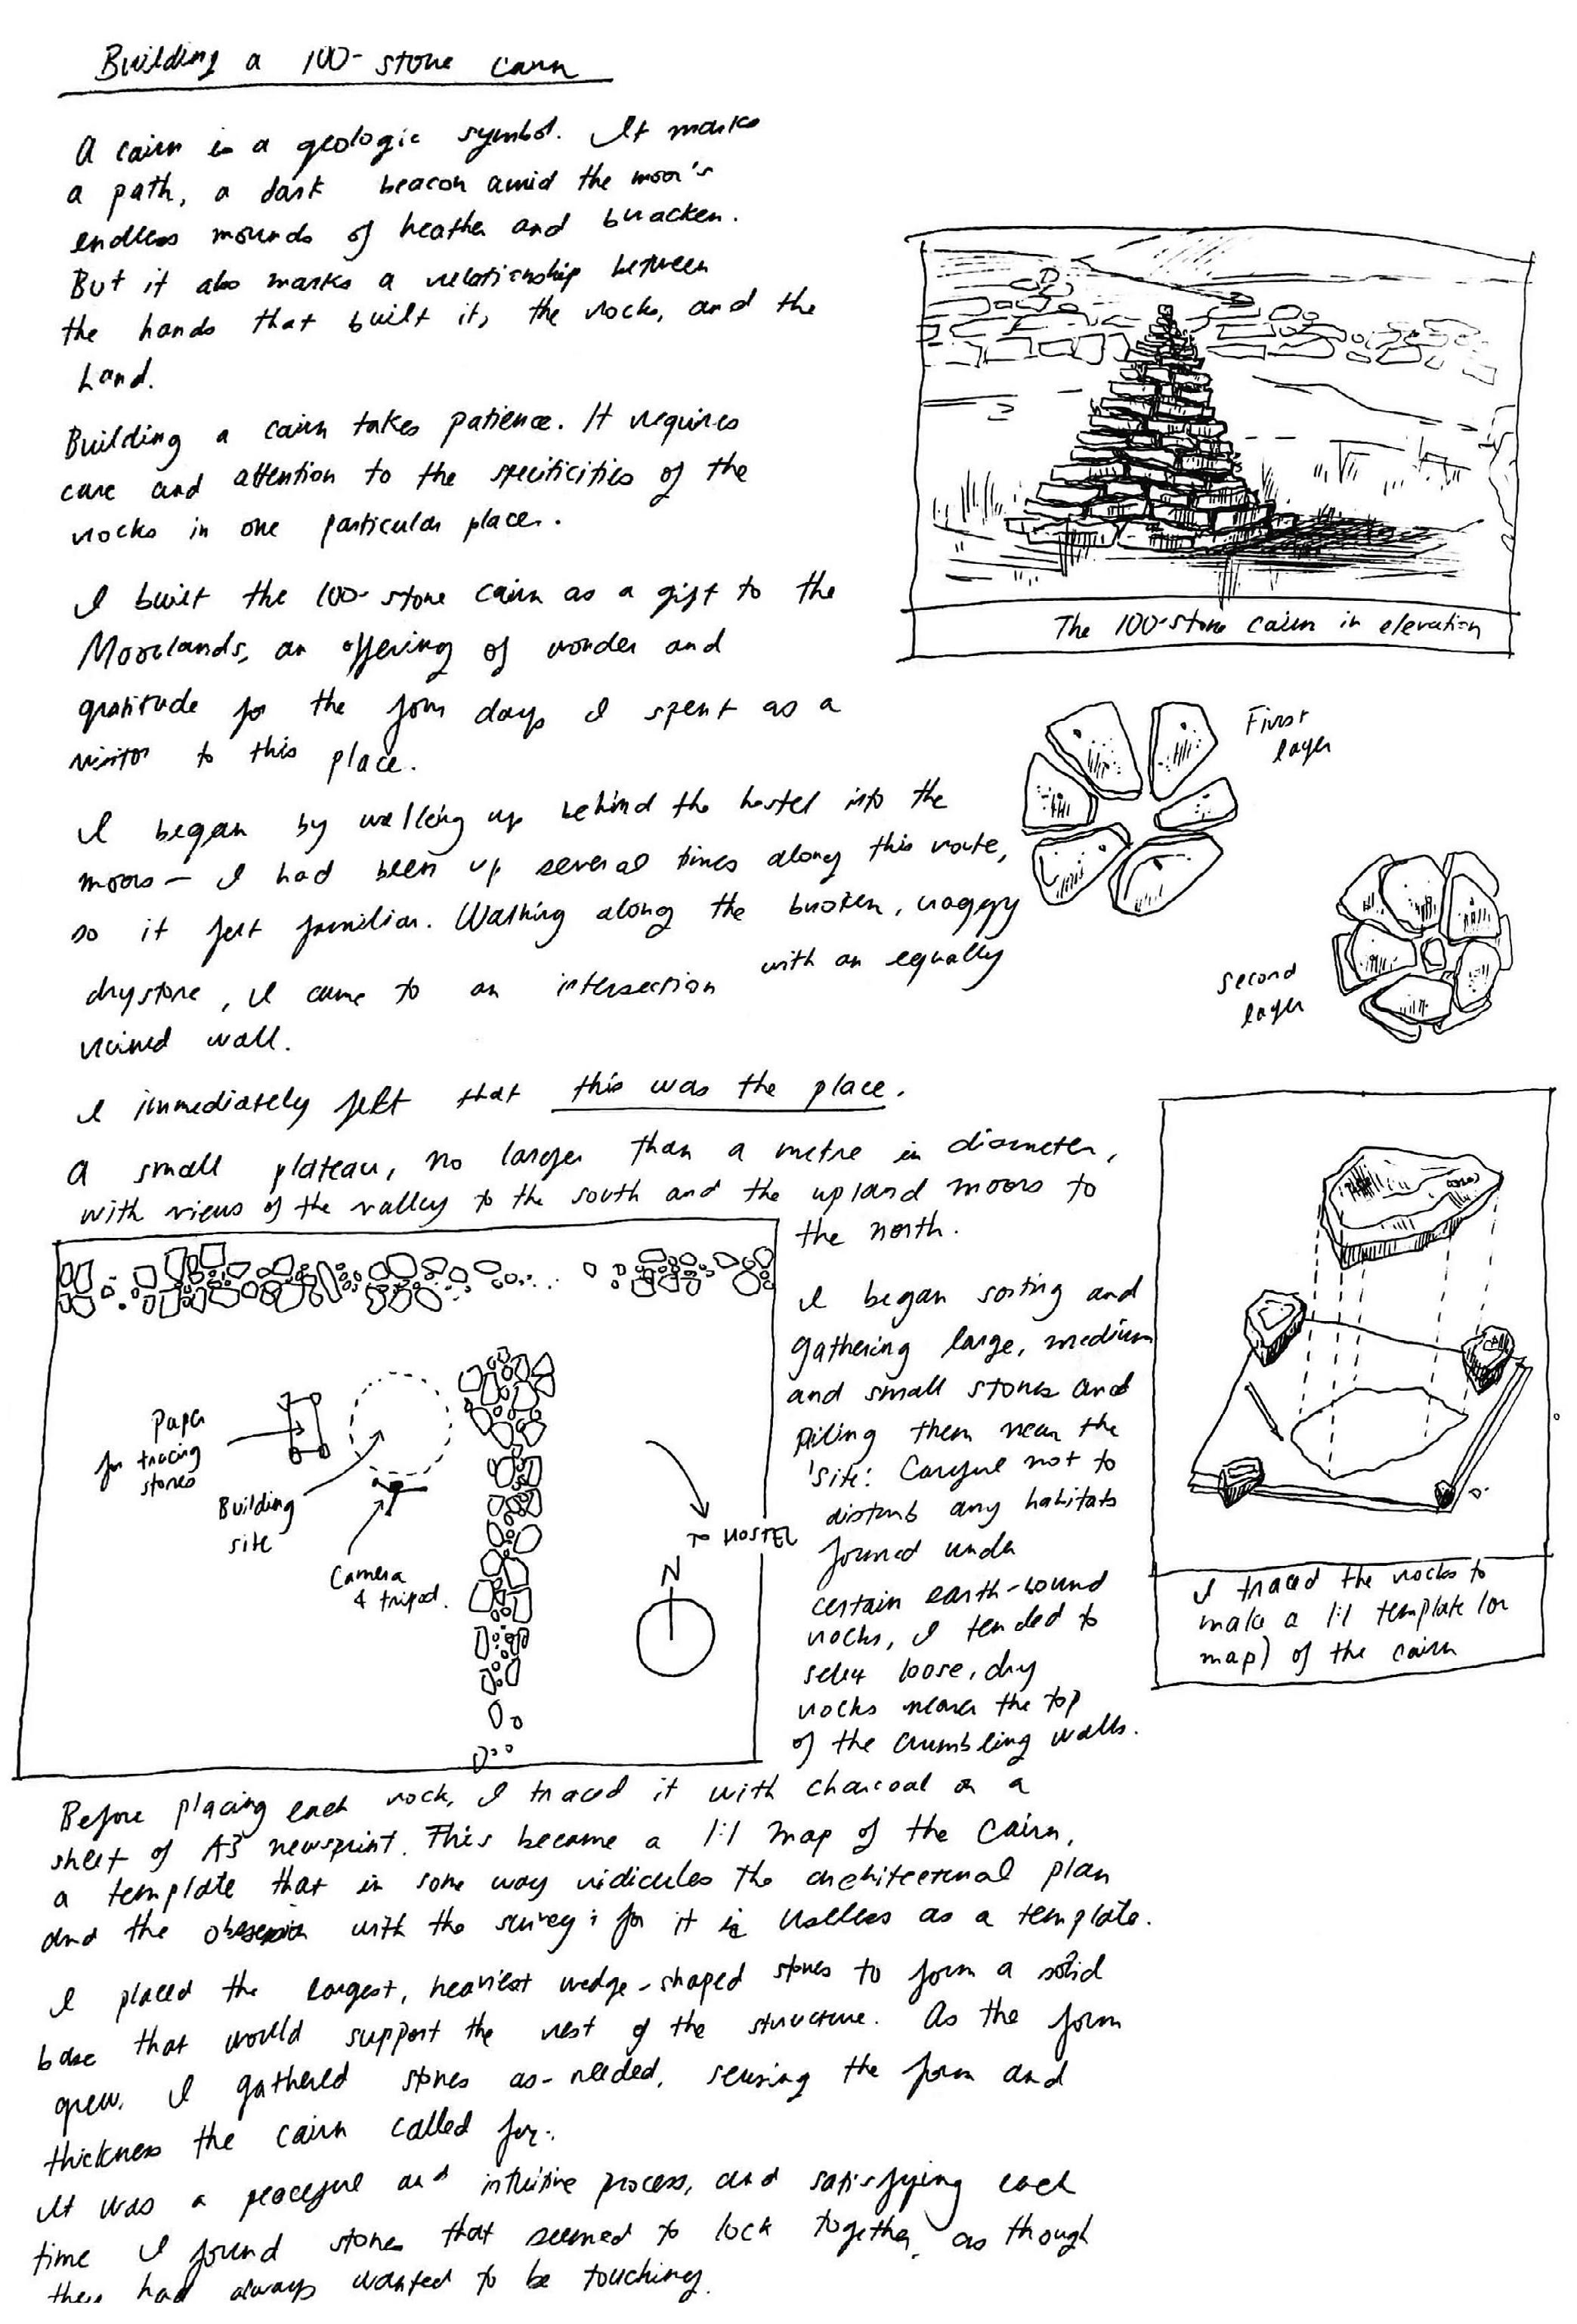 Building a 100-stone cairn
A cairn is a geologic symbol. It marks
a path, a dark beacon amid the moor's
endless mounds of heather and bracken.
But it also marks a relationship between
the hands that built it, the rocks, and the
Land.
Building a cairn takes patience. It requires
care and attention to the specificities of the
rocks in one particular place.
I built the 100-stone cairn as a gift to the
Moorlands, an offering of wonder and
gratitude for the four days I spent as a
visitor to this place.
I began by walking up behind the hostel into the
moors – I had been up several times along this route,
so it felt familiar. Walking along the broken, craggy
drystone, I came to an intersection with an equally
ruined wall.
I immediately felt that this was the place.
A small plateau, no larger than a metre in diameter,
with views of the valley to the south and the upland moors to
the north.
I began sorting and
gathering large, medium
and small stones and
piling them near the
'site'. Careful not to
disturb any habitats
formed under
certain earth-bound
rocks, I tended to
select loose, dry
rocks nearer the top
of the crumbling walls.
Before placing each rock, I traced it with charcoal on a
sheet of A3 newsprint. This became a 1:1 map of the cairn,
a template that in some way ridicules the architectural plan
and the obsession with the survey; for it is useless as a template.
I placed the largest, heaviest wedge-shaped stones to form a solid
base that would support the rest of the structure. As the form
grew, I gathered stones as-needed, sensing the form and
thickness the cairn called for.
It was a peaceful and intuitive process, and satisfying each
time I found stones that seemed to lock together, as though
they had always wanted to be touching.
The 100-stone cairn in elevation
First
layer
second
layer
Paper
for tracing
stones
Building
site
Camera
& tripod.
To HOSTEL
N
I traced the rocks to
make a 1:1 template (or
map) of the cairn